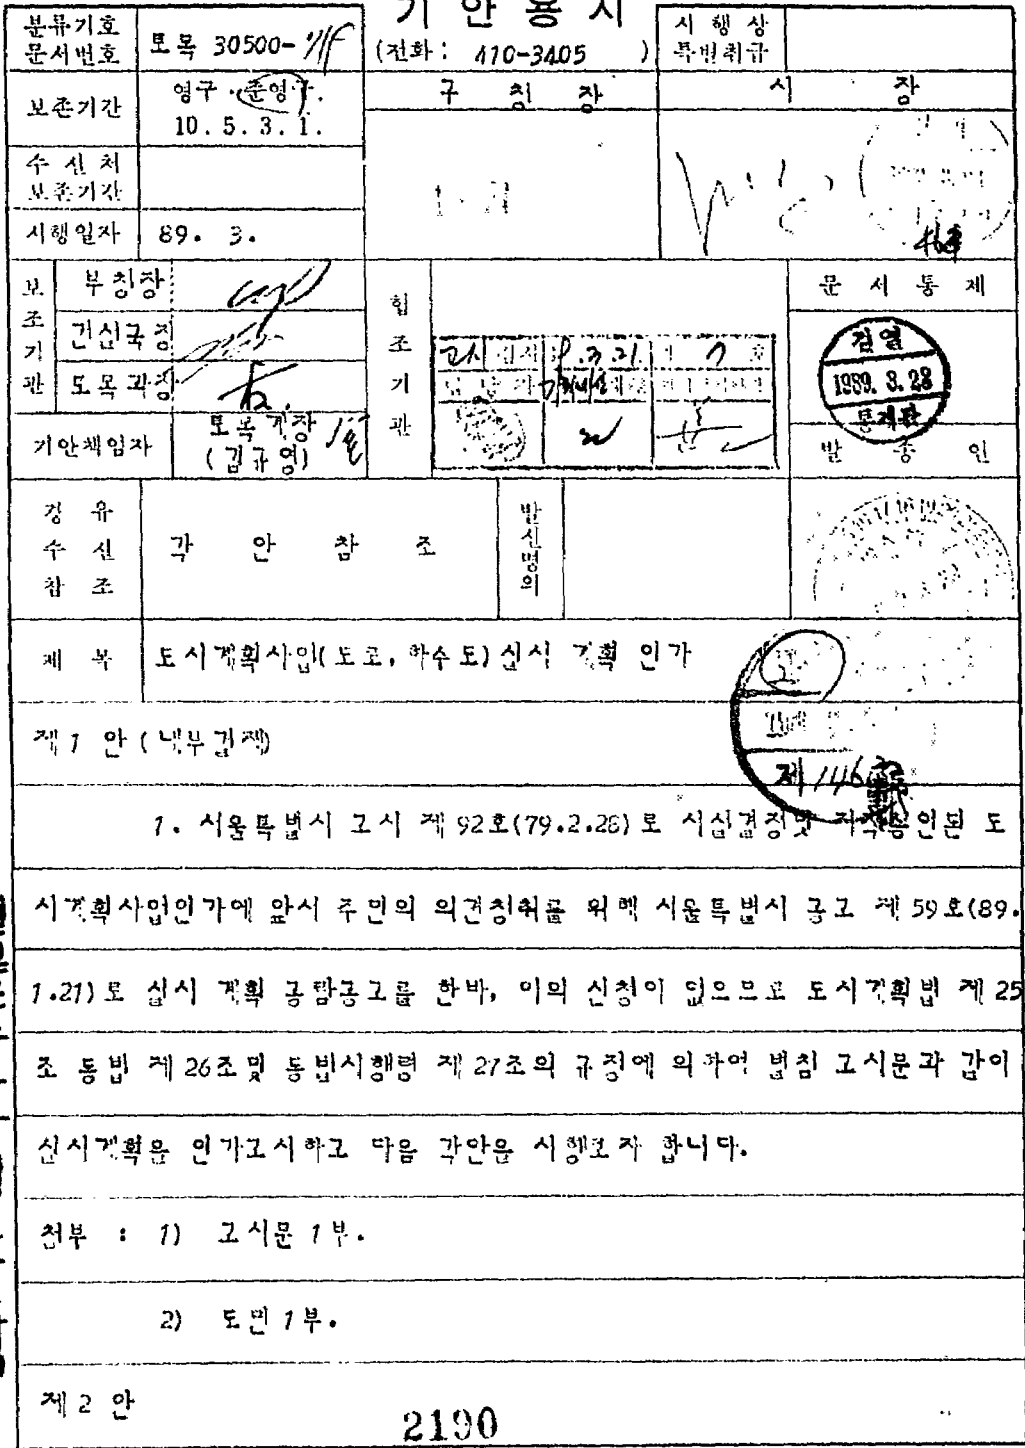 기 안 용 지
분류기호
문서번호
토목 30500-
(전화 : 410-3405 )
시 행 상
특별취급
보존기간
영구 · 준영구.
10. 5. 3. 1.
구 청 장
시 장
수 신 처
보존기간
시행일자
89. 3.
보조기관
부청장
건설국장
토목과장
협조기관
문 서 통 제
검열
1989. 3. 28
통제관
기안책임자
토목계장
(김규영)
발 송 인
경 유
수 신
참 조
각 안 참 조
발신명의
제 목
도시계획사업(도로, 하수도)실시 계획 인가
제 1 안 (내부결재)
제 1146호
1. 서울특별시 고시 제 92호(79.2.28)로 시설결정및 지적승인된 도
시계획사업인가에 앞서 주민의 의견청취를 위해 서울특별시 공고 제 59호(89.
1.21)로 실시 계획 공람공고를 한바, 이의 신청이 없으므로 도시계획법 제 25
조 동법 제 26조및 동법시행령 제 27조의 규정에 의하여 별첨 고시문과 같이
실시계획을 인가고시하고 다음 각안을 시행코자 합니다.
첨부 : 1) 고시문 1부.
2) 도면 1부.
제 2 안
2190